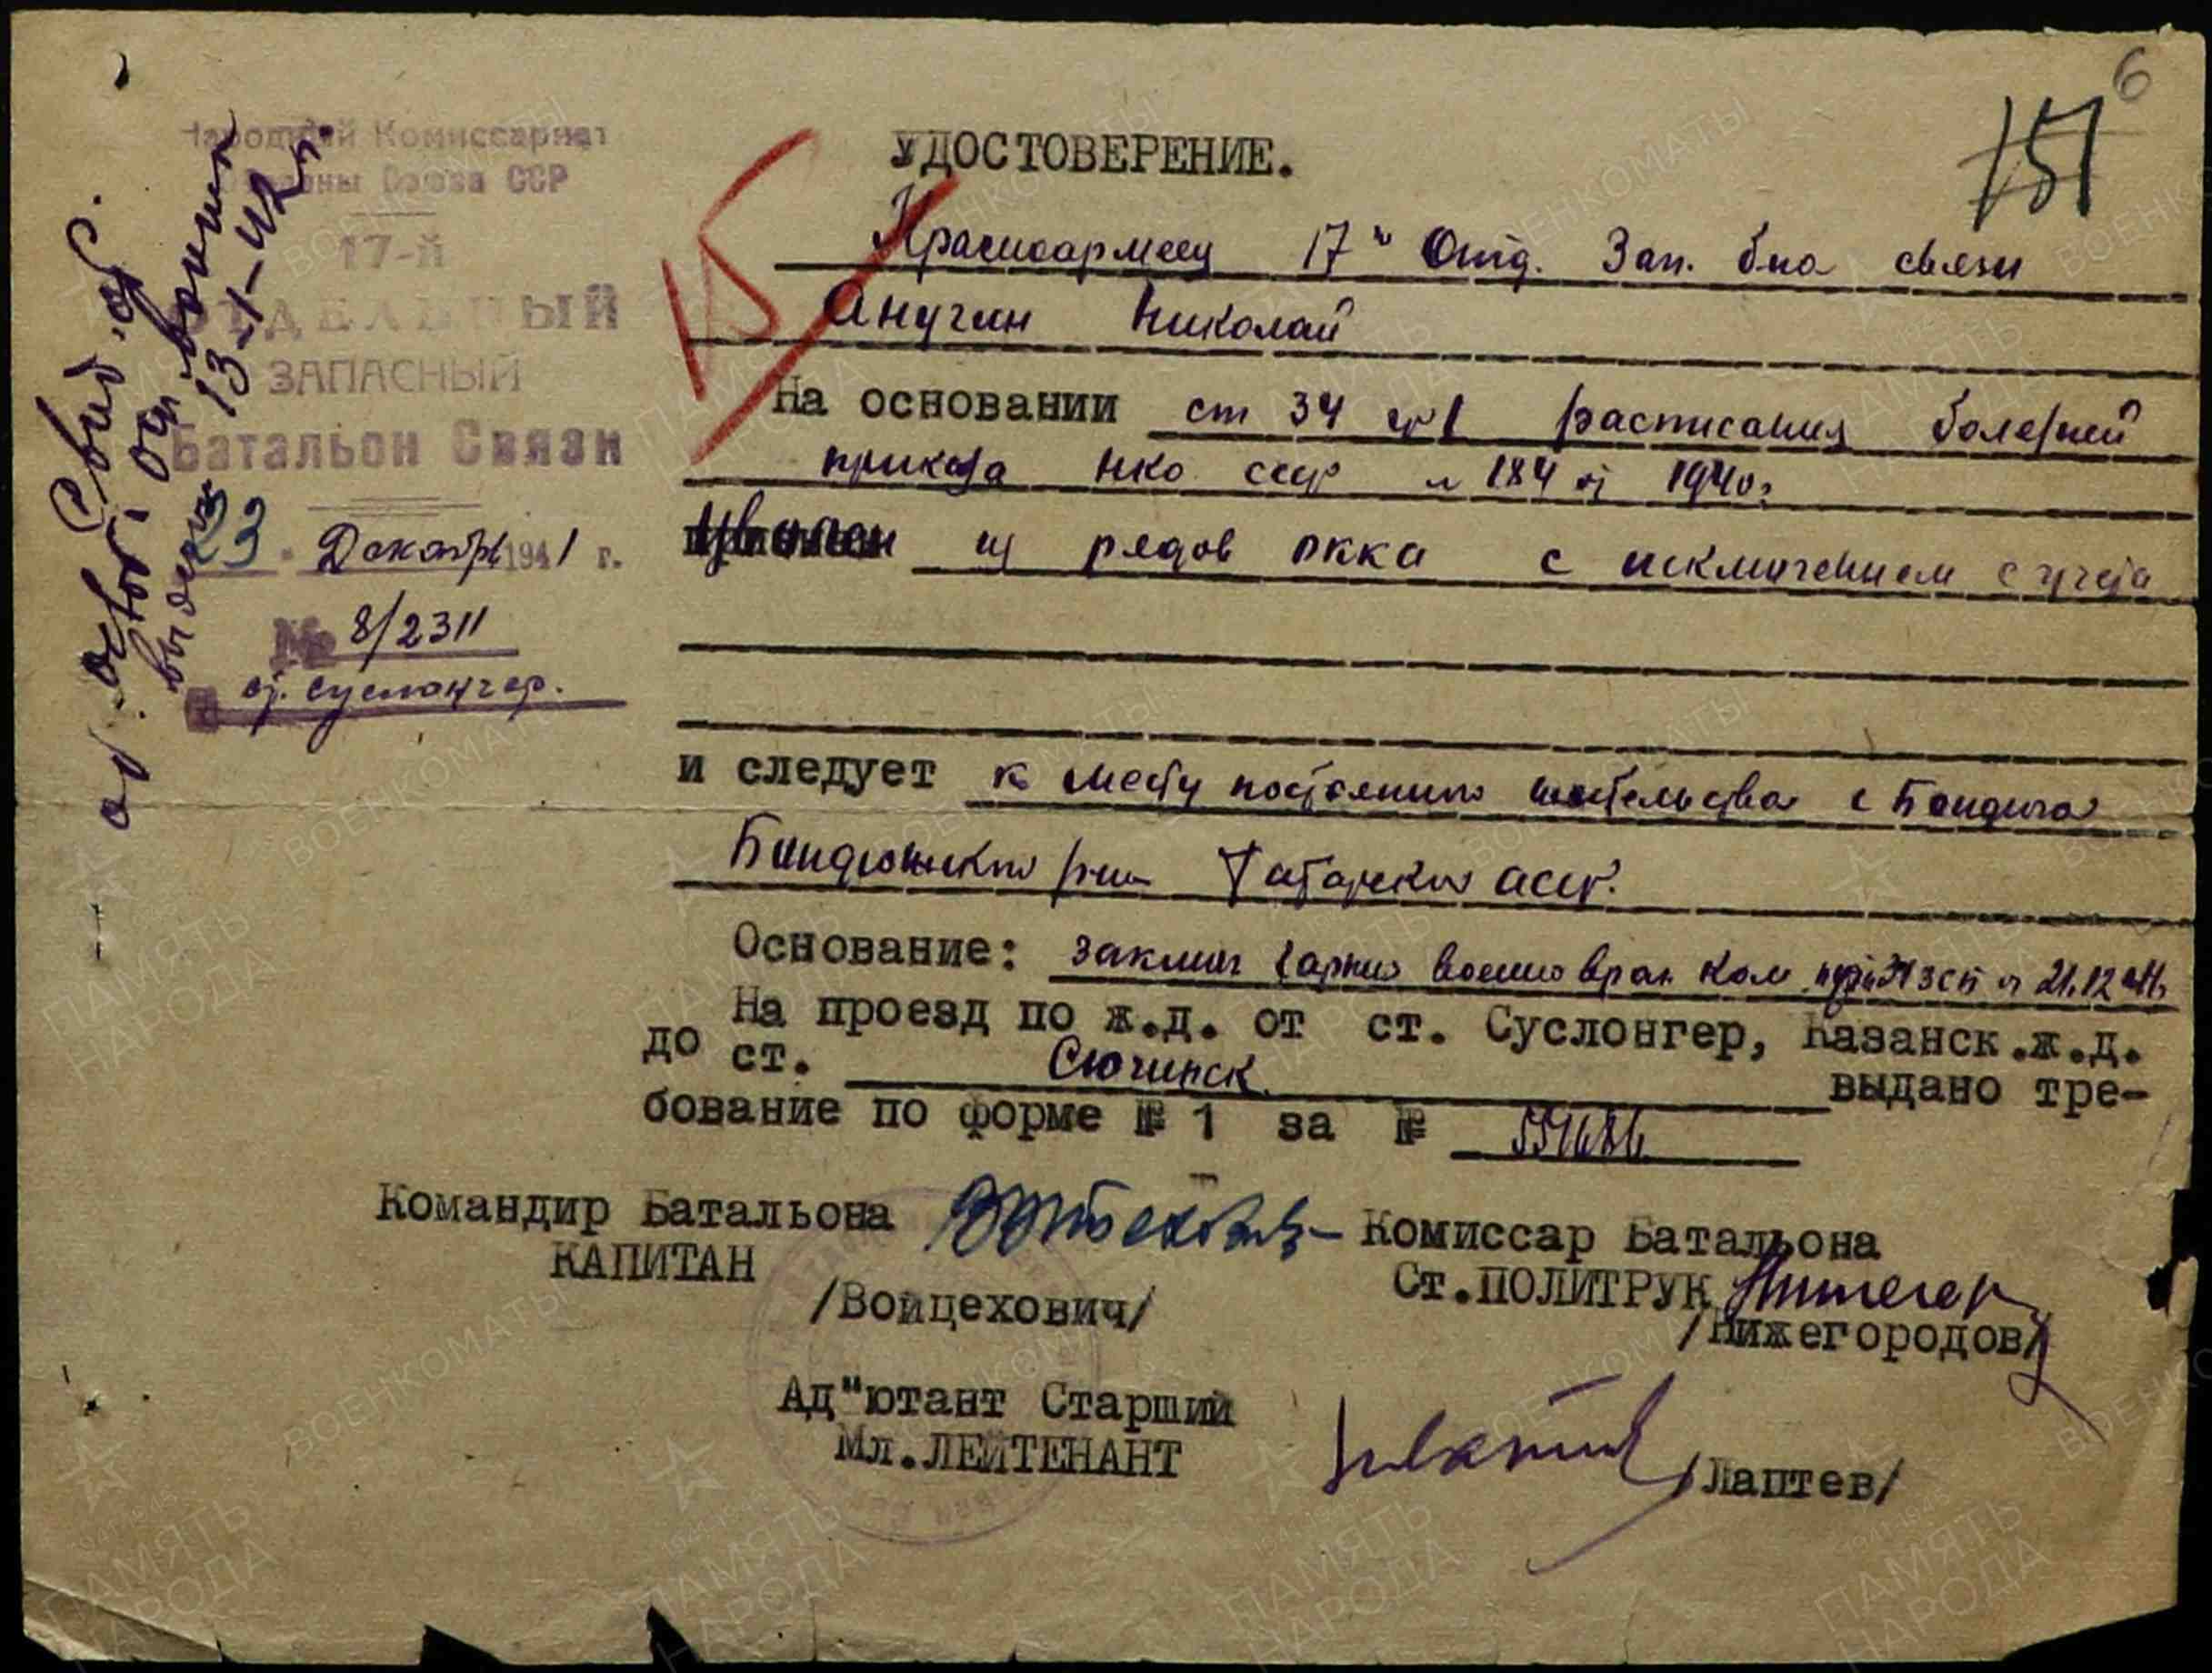 6
151
15
Народный Комиссариат
Обороны Союза ССР
17-й
ОТДЕЛЬНЫЙ
ЗАПАСНЫЙ
Батальон Связи
23 Декабря 1941 г.
№ 8/2311
ст. Суслонгер.
Свид.
13-I-42 г.
УДОСТОВЕРЕНИЕ.
Красноармеец 17й Отд. Зап. б-на связи
Анучин Николай
На основании ст 34 гр 1 расписания болезней
приказа НКО СССР № 184 от 1940г
Уволен из рядов РККА с исключением с учета
и следует к месту постоянно жительства с Бондюга
Бондюжского р-на Татарской АССР.
Основание: заключ гарниз военно врач ком при ЗСП от 21.12.41г
На проезд по ж.д. от ст. Суслонгер, Казанск.ж.д.
до ст. Сюгинск выдано тре-
бование по форме № 1 за №
Командир Батальона
КАПИТАН
/Войцехович/
Комиссар Батальона
Ст.ПОЛИТРУК
/Нижегородов/
Ад"ютант Старший
Мл.ЛЕЙТЕНАНТ
/Лаптев/
ПАМЯТЬ НАРОДА
ВОЕНКОМАТЫ